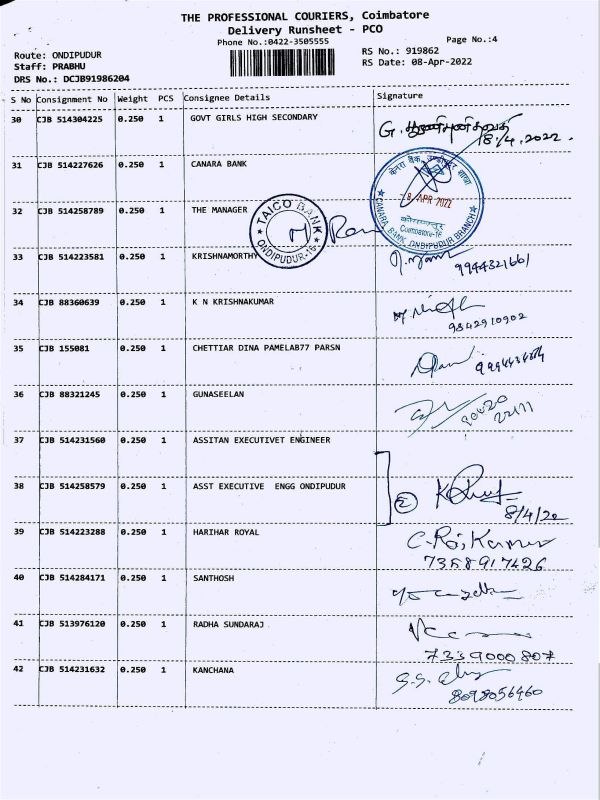 THE PROFESSIONAL COURIERS, Coimbatore
Delivery Runsheet - PCO
Phone No.:0422-3505555
Page No.:4
Route: ONDIPUDUR
RS No.: 919862
Staff: PRABHU
RS Date: 08-Apr-2022
DRS No.: DCJB91986204
S No Consignment No Weight PCS Consignee Details Signature
30 CJB 514304225 0.250 1 GOVT GIRLS HIGH SECONDARY G.
18.4.2022.
31 CJB 514227626 0.250 1 CANARA BANK
8 APR 2022
Coimbatore-16
CANARA BANK, ONDIPUDUR BRANCH
32 CJB 514258789 0.250 1 THE MANAGER
TAICO BANK
ONDIPUDUR-16
33 CJB 514223581 0.250 1 KRISHNAMORTHY
9944321661
34 CJB 88360639 0.250 1 K N KRISHNAKUMAR
9842910902
35 CJB 155081 0.250 1 CHETTIAR DINA PAMELAB77 PARSN
36 CJB 88321245 0.250 1 GUNASEELAN
37 CJB 514231560 0.250 1 ASSITAN EXECUTIVET ENGINEER
38 CJB 514258579 0.250 1 ASST EXECUTIVE ENGG ONDIPUDUR
2
8/4/22
39 CJB 514223288 0.250 1 HARIHAR ROYAL C. Raj Kumar
7358917426
40 CJB 514284171 0.250 1 SANTHOSH
41 CJB 513976120 0.250 1 RADHA SUNDARAJ
7339000807
42 CJB 514231632 0.250 1 KANCHANA
8098056460